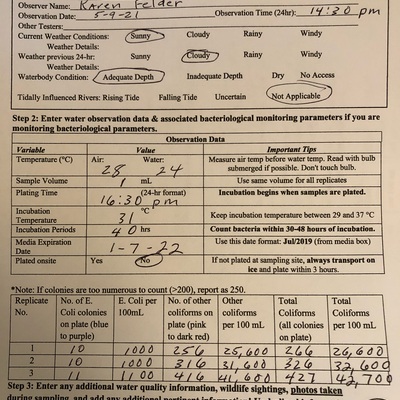 Observer Name: Karen Felder
Observation Date: 5-9-21 Observation Time (24hr): 14:30 pm
Other Testers:
Current Weather Conditions: Sunny Cloudy Rainy Windy
Weather Details:
Weather previous 24-hr: Sunny Cloudy Rainy Windy
Weather Details:
Waterbody Condition: Adequate Depth Inadequate Depth Dry No Access
Tidally Influenced Rivers: Rising Tide Falling Tide Uncertain Not Applicable
Step 2: Enter water observation data & associated bacteriological monitoring parameters if you are
monitoring bacteriological parameters.
Observation Data
Variable Value Important Tips
Temperature (°C) Air: 28 Water: 24 Measure air temp before water temp. Read with bulb submerged if possible. Don't touch bulb.
Sample Volume 1 mL Use same volume for all replicates
Plating Time (24-hr format) 16:30 pm Incubation begins when samples are plated.
Incubation Temperature 31 °C Keep incubation temperature between 29 and 37 °C
Incubation Periods 40 hrs Count bacteria within 30-48 hours of incubation.
Media Expiration Date 1-7-22 Use this date format: Jul/2019 (from media box)
Plated onsite Yes No If not plated at sampling site, always transport on ice and plate within 3 hours.
*Note: If colonies are too numerous to count (>200), report as 250.
Replicate No. No. of E. Coli colonies on plate (blue to purple) E. Coli per 100mL No. of other coliforms on plate (pink to dark red) Other coliforms per 100 mL Total Coliforms (all colonies on plate) Total coliforms per 100 mL
1 10 1000 256 25,600 266 26,600
2 10 1000 316 31,600 326 32,600
3 11 1100 416 41,600 427 42,700
Step 3: Enter any additional water quality information, wildlife sightings, photos taken
during sampling, and add any additional